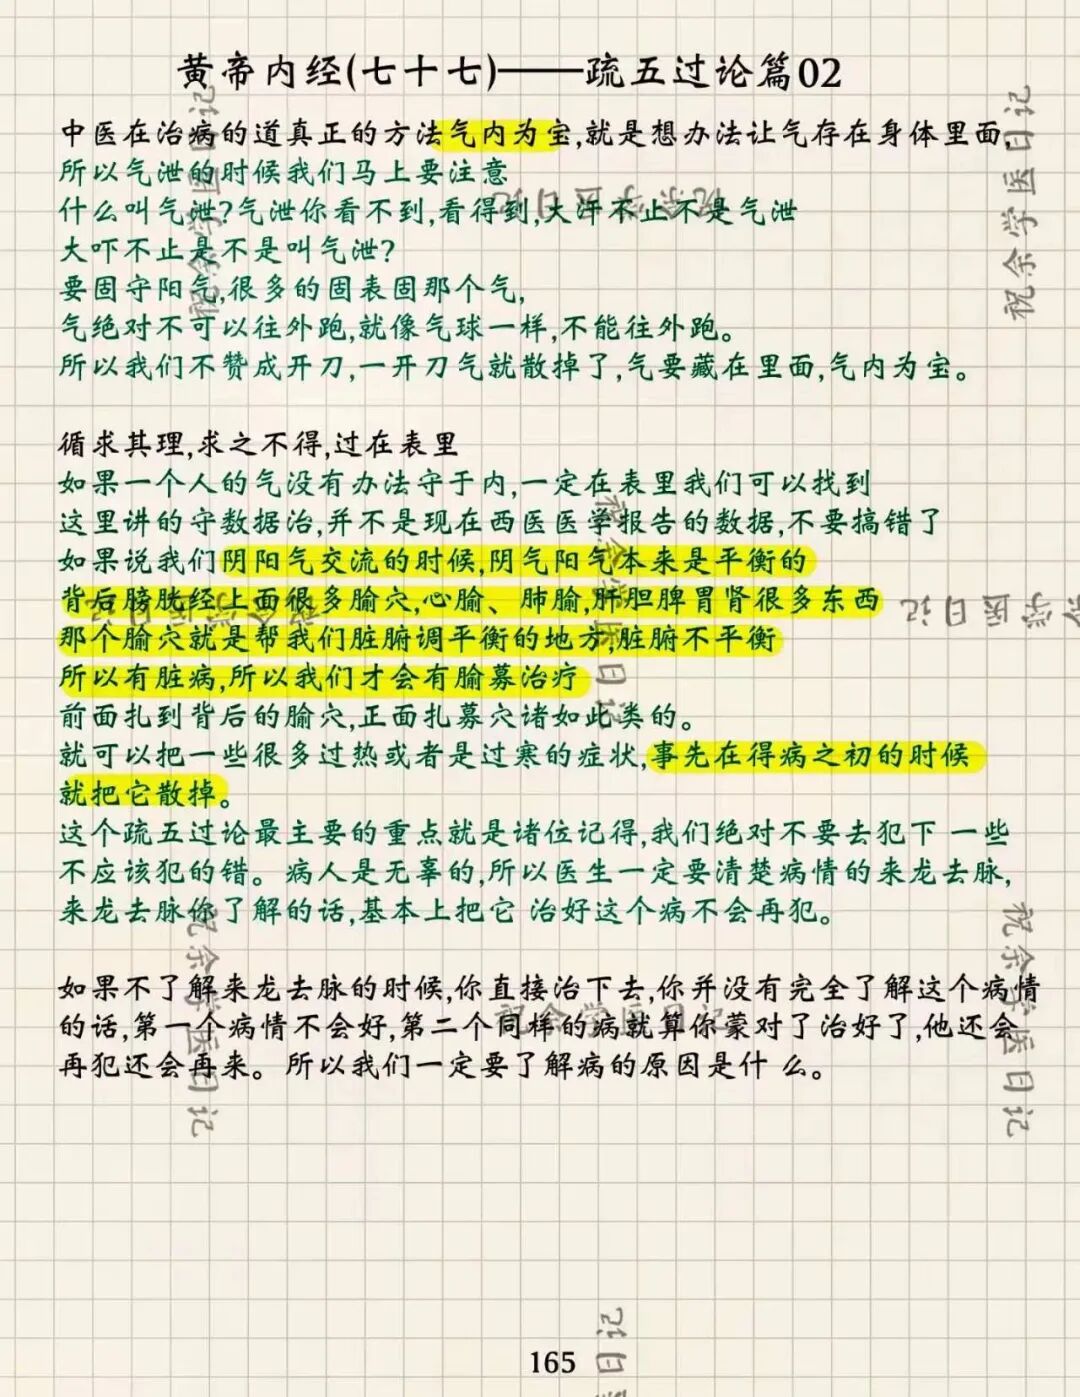 黄帝内经(七十七)——疏五过论篇02
中医在治病的道真正的方法气内为宝,就是想办法让气存在身体里面,
所以气泄的时候我们马上要注意
什么叫气泄?气泄你看不到,看得到,大汗不止不是气泄
大吓不止是不是叫气泄?
要固守阳气,很多的固表固那个气,
气绝对不可以往外跑,就像气球一样,不能往外跑。
所以我们不赞成开刀,一开刀气就散掉了,气要藏在里面,气内为宝。
循求其理,求之不得,过在表里
如果一个人的气没有办法守于内,一定在表里我们可以找到
这里讲的守数据治,并不是现在西医医学报告的数据,不要搞错了
如果说我们阴阳气交流的时候,阴气阳气本来是平衡的
背后膀胱经上面很多腧穴,心腧、肺腧,肝胆脾胃肾很多东西
那个腧穴就是帮我们脏腑调平衡的地方,脏腑不平衡
所以有脏病,所以我们才会有腧募治疗
前面扎到背后的腧穴,正面扎募穴诸如此类的。
就可以把一些很多过热或者是过寒的症状,事先在得病之初的时候
就把它散掉。
这个疏五过论最主要的重点就是诸位记得,我们绝对不要去犯下 一些
不应该犯的错。病人是无辜的,所以医生一定要清楚病情的来龙去脉,
来龙去脉你了解的话,基本上把它 治好这个病不会再犯。
如果不了解来龙去脉的时候,你直接治下去,你并没有完全了解这个病情
的话,第一个病情不会好,第二个同样的病就算你蒙对了治好了,他还会
再犯还会再来。所以我们一定要了解病的原因是什 么。
165
祝余学医日记
祝余学医日记
祝余学医日记
祝余学医日记
祝余学医日记
祝余学医日记
祝余学医日记
祝余学医日记